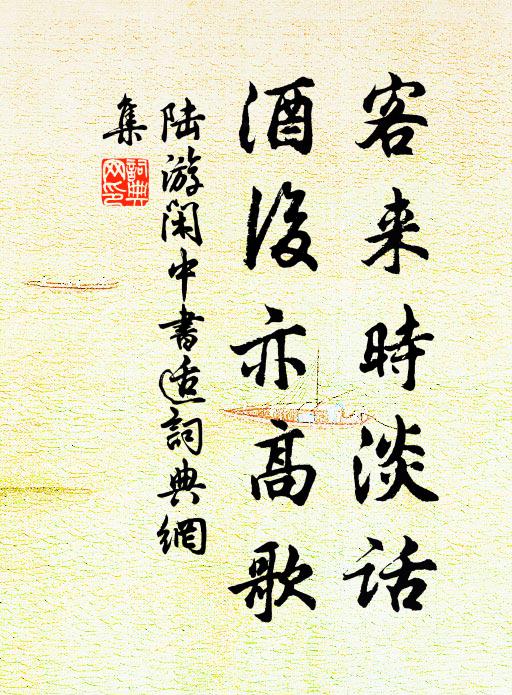 客来時淡話
酒後亦高歌
陆游闲中書适詞典網
集
詞典网印